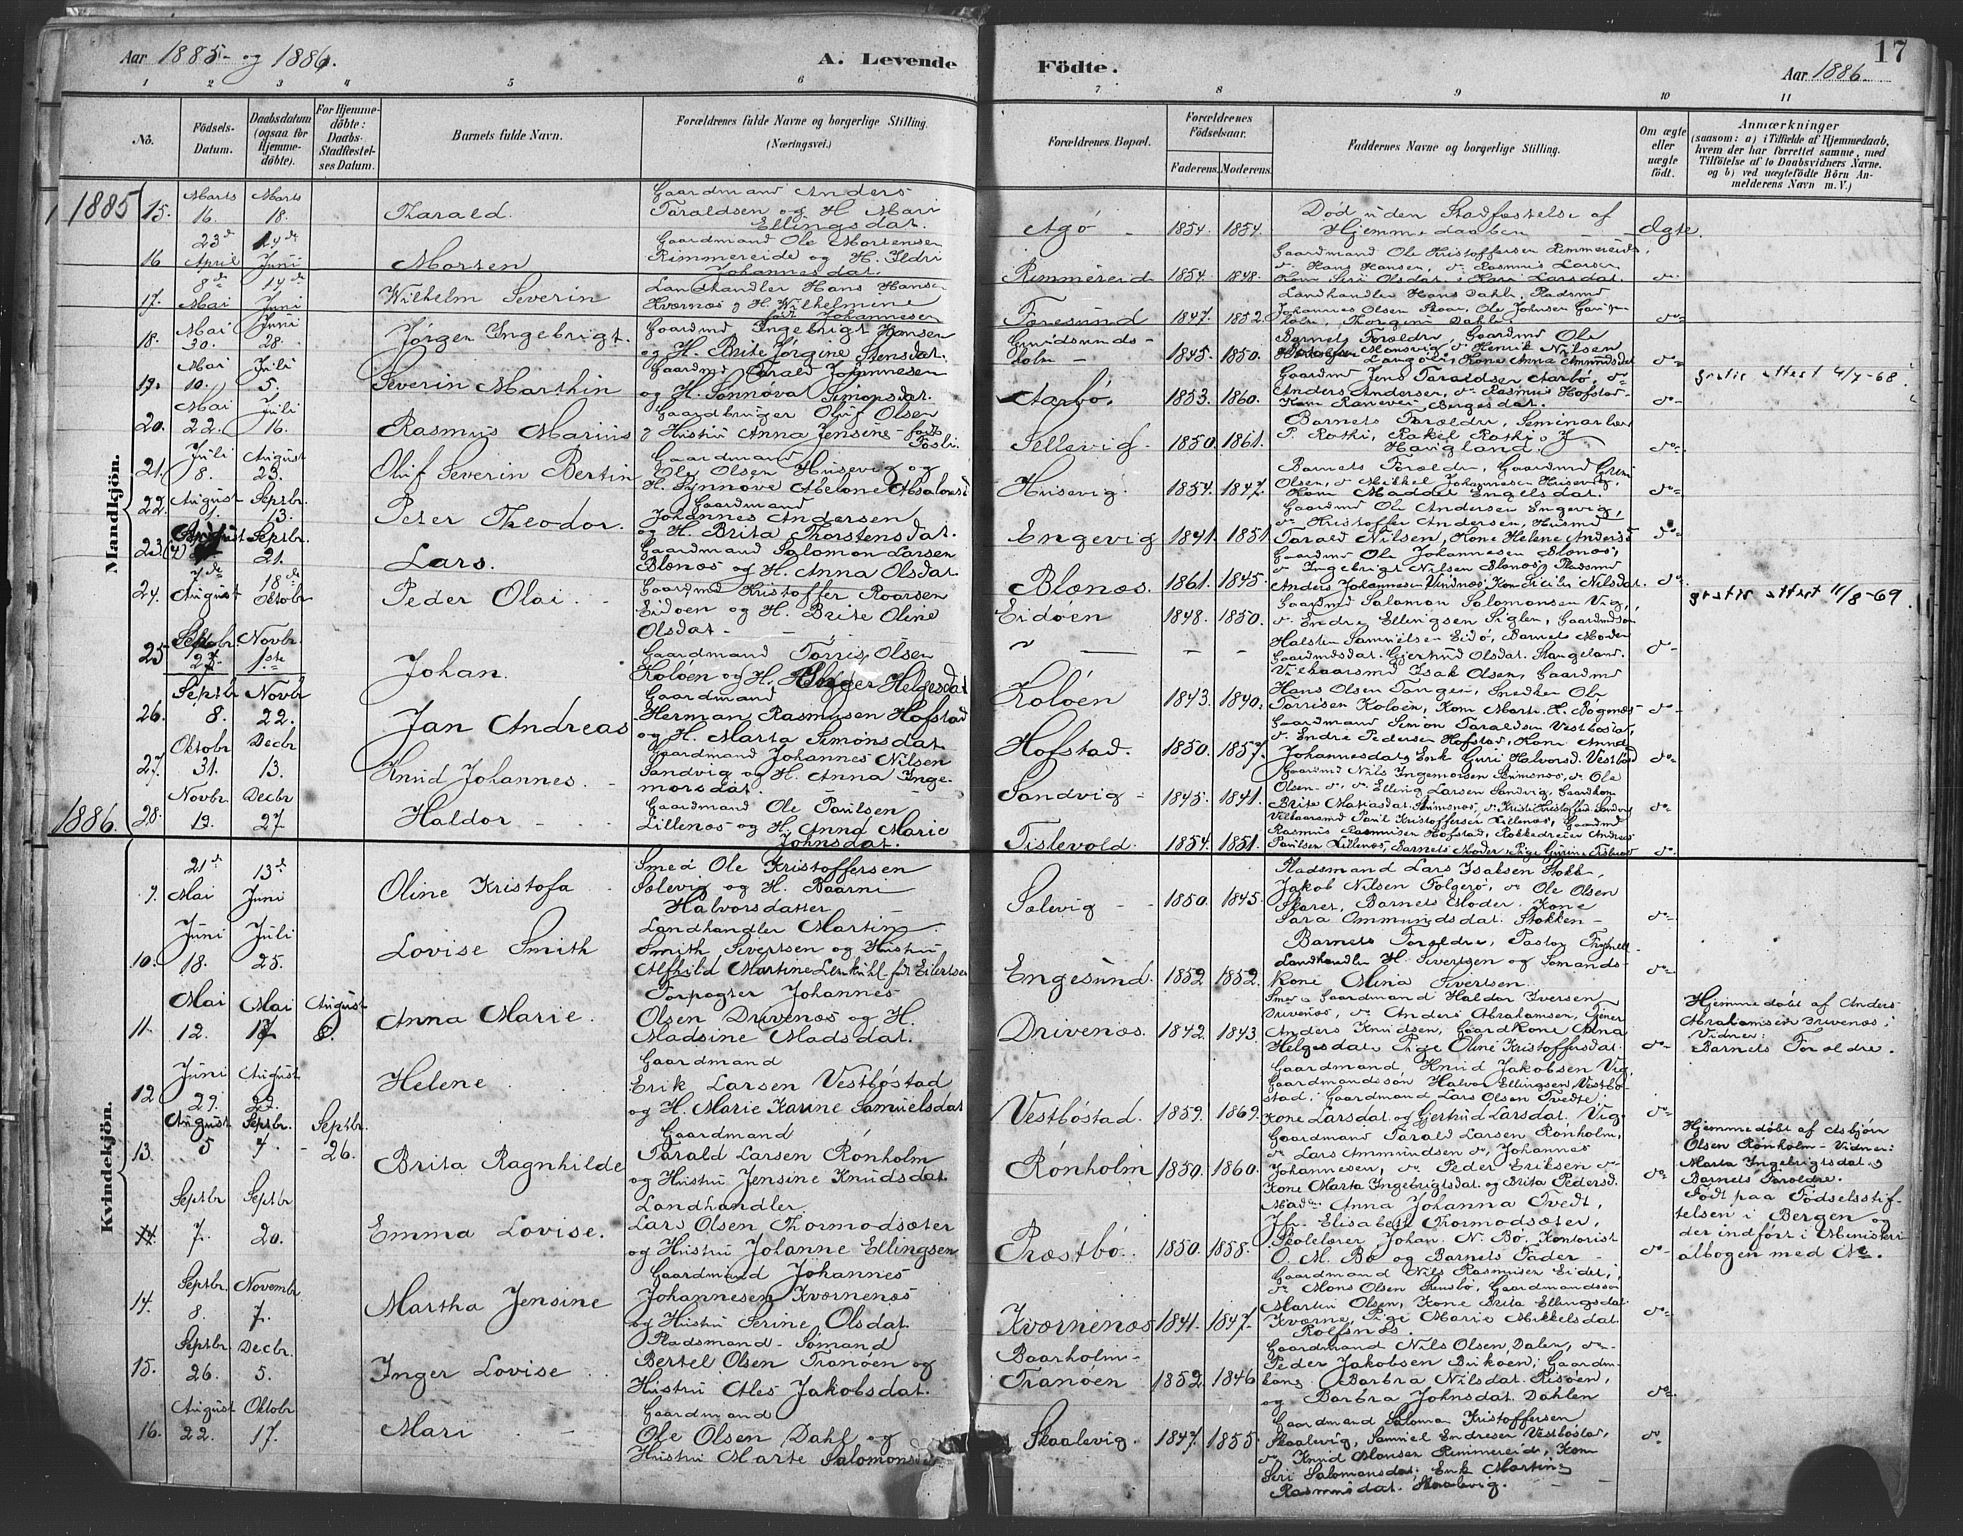 Aar 1885- og 1886.
A. Levende
Födte.
17
Aar 1886.
1 2 3 4 5 6 7 8 9 10 11
No.
Födsels-
Datum.
Daabsdatum
(ogsaa for
Hjemme-
döbte).
For Hjemme-
döbte:
Daabs-
Stadfæstel-
ses Datum.
Barnets fulde Navn.
Forældrenes fulde Navne og borgerlige Stilling.
(Næringsvei.)
Forældrenes Bopæl.
Forældrenes
Födselsaar.
Faderens. Moderens.
Faddernes Navne og borgerlige Stilling.
Om ægte
eller
uægte
født.
Anmærkninger
(saasom: a) i Tilfælde af Hjemmedaab,
hvem der har forrettet samme, med
Tilföielse af to Daabsvidners Navne.
og b) ved uægtefödte Börn An-
melderens Navn m. V.)
Mandkjön.
1885
15. Marts 16. Marts 18. Tharald.
Gaardmand Anders
Taraldsen og H. Mari
Ellingsdat.
Agö 1854. 1854.
Död uden Stadfæstelse af
Hjemmedaaben
Ægte.
16 23d April 14de Juni Morten
Gaardmand Ole Mortensen
Rimmereide og H. Ildri
Johannesdat.
Rimmereid 1854. 1848.
Gaardmand Ole Kristoffersen Rimmereide
do Hans Hansen, do Rasmus Larsen
do
17. 8de Mai 14de Juni Wilhelm Severin
Landhandler Hans Hansen
Kværnæs og H. Wilhelmine
født Johannesen
Foresund 1847. 1852.
Landhandler Hans Dahle, Pladsmd
do
18. Mai 30. Juni 28. Jørgen Ingebrigt.
Gaardmd Ingebrigt Hansen
og H. Brite Jørgine Stensdat.
Gunidsunds-
holm 1845. 1850.
Barnets Forældre, Gaardmd Ole
do
19. Mai 10. Juli 5. Severin Marthin
Gaardmd Tarald Johannesen
og H. Sønnøva Simonsdat.
Aarbö. 1853. 1860.
Gaardmd Jens Taraldsen Aarbö, do
Anders Andersen, do Rasmus Hofstad
do
gratis attest 4/7-68
20. Mai 22. Juli 16. Rasmus Marius
Gaardbruger Oluf Olsen
og Hustru Anna Jensine - født
Fosli
Sellevig 1850. 1861.
Barnets Forældre, Seminarlærer
P. Rothi, Rakel Rothi, J.
Havigland.
do
21. Juli 8. August 23. Oluf Severin Bertin
Gaardmand
Ole Olsen Husevig og
H. Synnøve Abelone Absalonsd
Husevig. 1854. 1847.
Barnets Forældre, Gaardmd
Olsen, do Mikkel Johannesen Husevig,
Kone Madde Engelsdat.
do
22. August 1. Septbr. 13. Peter Theodor.
Gaardmand
Johannes Andersen
og H. Brita Thorstensdat.
Engevig 1841. 1851.
Gaardmd Ole Andersen Engevig,
do Kristoffer Andersen, Husmd
Tarald Nilsen, Kone Helene Andersd
do
23. August Septbr. 21. Lars.
Gaardmand Salomon Larsen
Blænæs og H. Anna Olsdat
Blænæs. 1861. 1845.
Gaardmd Ole Johannesen Blænæs,
do Ingebrigt Nilsen Blænæs, Pladsmd
Anders Johannesen Kone Nilsdat.
do
24. 7de August 18de Oktobr Peder Olai
Gaardmd Kristoffer Roarsen
Eidøen og H. Brite Oline
Olsdat
Eidöen 1848. 1850.
Gaardmd Salamon Salamonsen Vig,
do Endre Ellingsen Siglen, Gaardmdsøn
Halsten Samuelsen Eidö, Barnets Moder
Gaardmdsdat. Gjertrud Olsdat. Stangeland.
do
gratis attest 11/8-69
25 Septbr. 27. Novbr. 1ste Johan
Gaardmand Tørris Olsen
Koløen og H. Inger Helgesdat
Koløen 1843. 1840.
Vilkaarsmd Isak Olsen, Gaardmd
Hans Olsen Tangen, Snedker Ole
Torrisen Koløen, Kone Marte L. Bøgenæs
do
26. Septbr 8. Novbr 22. Jan Andreas
Gaardmand
Herman Rasmusen Hofstad
og H. Marta Simonsdat.
Hofstad. 1850. 1857.
Gaardmand Simon Taraldsen Vestbøstad,
do Endre Pedersen Hofstad, Kone Anna
Johannesdat, Enk Guri Halvorsd. Vestbøstad
do
27. Oktobr 31. Decbr 13. Knud Johannes.
Gaardmand Johannes Nilsen
Sandvig og H. Anna Inge-
morsdat.
Sandvig 1845. 1841.
Gaardmd Nils Ingemorsen Brimsnæs, do Ole
Olsen do, do Elling Larsen Sandvig, Gaardkone
do
1886.
28. Novbr. 19. Decbr 27 Haldor
Gaardmand Ole Paulsen
Lillenæs og H. Anna Marie
Johnsdat.
Tislevold. 1854. 1851.
Vilkaarsmd Paul Kristoffersen Lillenæs, Gaardmd
Rasmus Rasmusen Hofstad, Rokkedreier Andreas
Paulsen Lillenæs, Barnets Moder
do
Kvindekjön.
9. 21de Mai 13de Juni Oline Kristofa
Smed Ole Kristoffersen
Salevig og H. Baarni
Halvorsdatter
Salevig 1850. 1845.
Pladsmand Lars Isaksen Stokk.,
Jakob Nilsen Folgerø, do Ole Olsen
Skaret, Barnets Moder, Kone
Sara Ommundsdat. Stokken
do
10. Juni 18. Juli 25. Lovise Smith
Landhandler Martin
Smith Sivertsen og Hustru
Alfhild Martine Lerkühl - fd. Eilertsen
Engesund. 1852 1852.
Barnets Forældre, Pastor
Landhandler H. Sivertsen og Sømands-
kone Olina Sivertsen.
do
11. Mai 12. Mai 17 August 8. Anna Marie.
Torpagter Johannes
Olsen Drivenæs og H.
Madsine Madsdat.
Drivenæs. 1842. 1843.
Smed & Gaardmand Haldor Iversen
Drivenæs, do Anders Abrahamsen, Tjener
Anders Knudsen, Gaardkone Anna
Helgesdat, Pige Oline Kristoffersdat.
do
Hjemmedøbt af Anders
Abrahamsen Drivenæs;
Vidner:
Barnets Forældre.
12 Juni 29. August 22. Helene
Gaardmand
Erik Larsen Vestbøstad
og H. Marie Karine Samuelsdat
Vestböstad. 1859. 1869.
Gaardmand Knud Jakobsen Vig,
Gaardmandssøn Halvor Ellingsen Vestbø-
stad; Gaardmand Lars Olsen Tvedte;
Kone Larsdat og Gjertrud Larsdat. Vig.
do
13. August 5 Septbr. 7. Septbr. - 26. Brita Ragnhilde
Gaardmand
Tarald Larsen Rønholm
og Hustru Jensine Knudsdat.
Rönholm 1850. 1860.
Gaardmand Tarald Larsen Rønholm,
do Lars Ammundsen do, Johannes
Johannesen, do Peder Eriksen do
Kone Marta Ingebrigtsdat. og Brita Pedersd.
do
Hjemmedøbt af Asbjørn
Olsen Rønholm - Vidner:
Marta Ingebrigtsdat. og
Barnets Forældre.
14. Septbr 7. Septbr 20. Emma Lovise.
Landhandler
Lars Olsen Thormodsæter
og Hustru Johanne Ellingsen
Præstbö. 1850. 1858.
Mad. Anna Johanna Tvedt,
Jfr. Elisabeth Thormodsæter,
Skolelærer Johan. N. Bø, Kontorist
O. M. Bø og Barnets Fader
do
Født paa Fødselsstif-
telsen i Bergen og
der indført i Ministeri-
albogen med No.
14. Septbr. 8. Novembr. 7. Martha Jensine
Gaardmand Johannes
Johannesen Kværnenæs
og Hustru Serine Olsdat.
Kværnenæs 1841. 1847.
Gaardmand Nils Rasmusen Eidet;
do Mons Olsen Stensbø, Gaardmandssøn
Martin Olsen, Kone Brita Ellingsdat
Kværne, Pige Marie Mikkelsdat
Rolfsnæs.
do
15. Septbr. 26. Decbr. 5. Inger Lovise.
Pladsmand - Sømand
Bertel Olsen Tranøen og
Hustru Ales Jakobsdat.
Baarholm-
Tranöen 1852. 1846
Gaardmand Nils Olsen, Dalen, do
Peder Jakobsen Brikøen; Gaardm-
kone Barbra Nilsdat. Risøen,
og Barbra Johnsdat. Dahlen
do
16. August 22. Oktobr 17. Mari
Gaardmand
Ole Olsen Dahl og
Hustru Marte Salomonsd.
Skaalevig. 1847. 1855.
Gaardmand Saloman Kristoffersen
Skaalevig, Samuel Endresen Vestbøstad,
do Knud Monsen Rimmereid, Kone
Siri Salomonsdat. Enk Martine
Rasmusdat. Skaalevig.
do